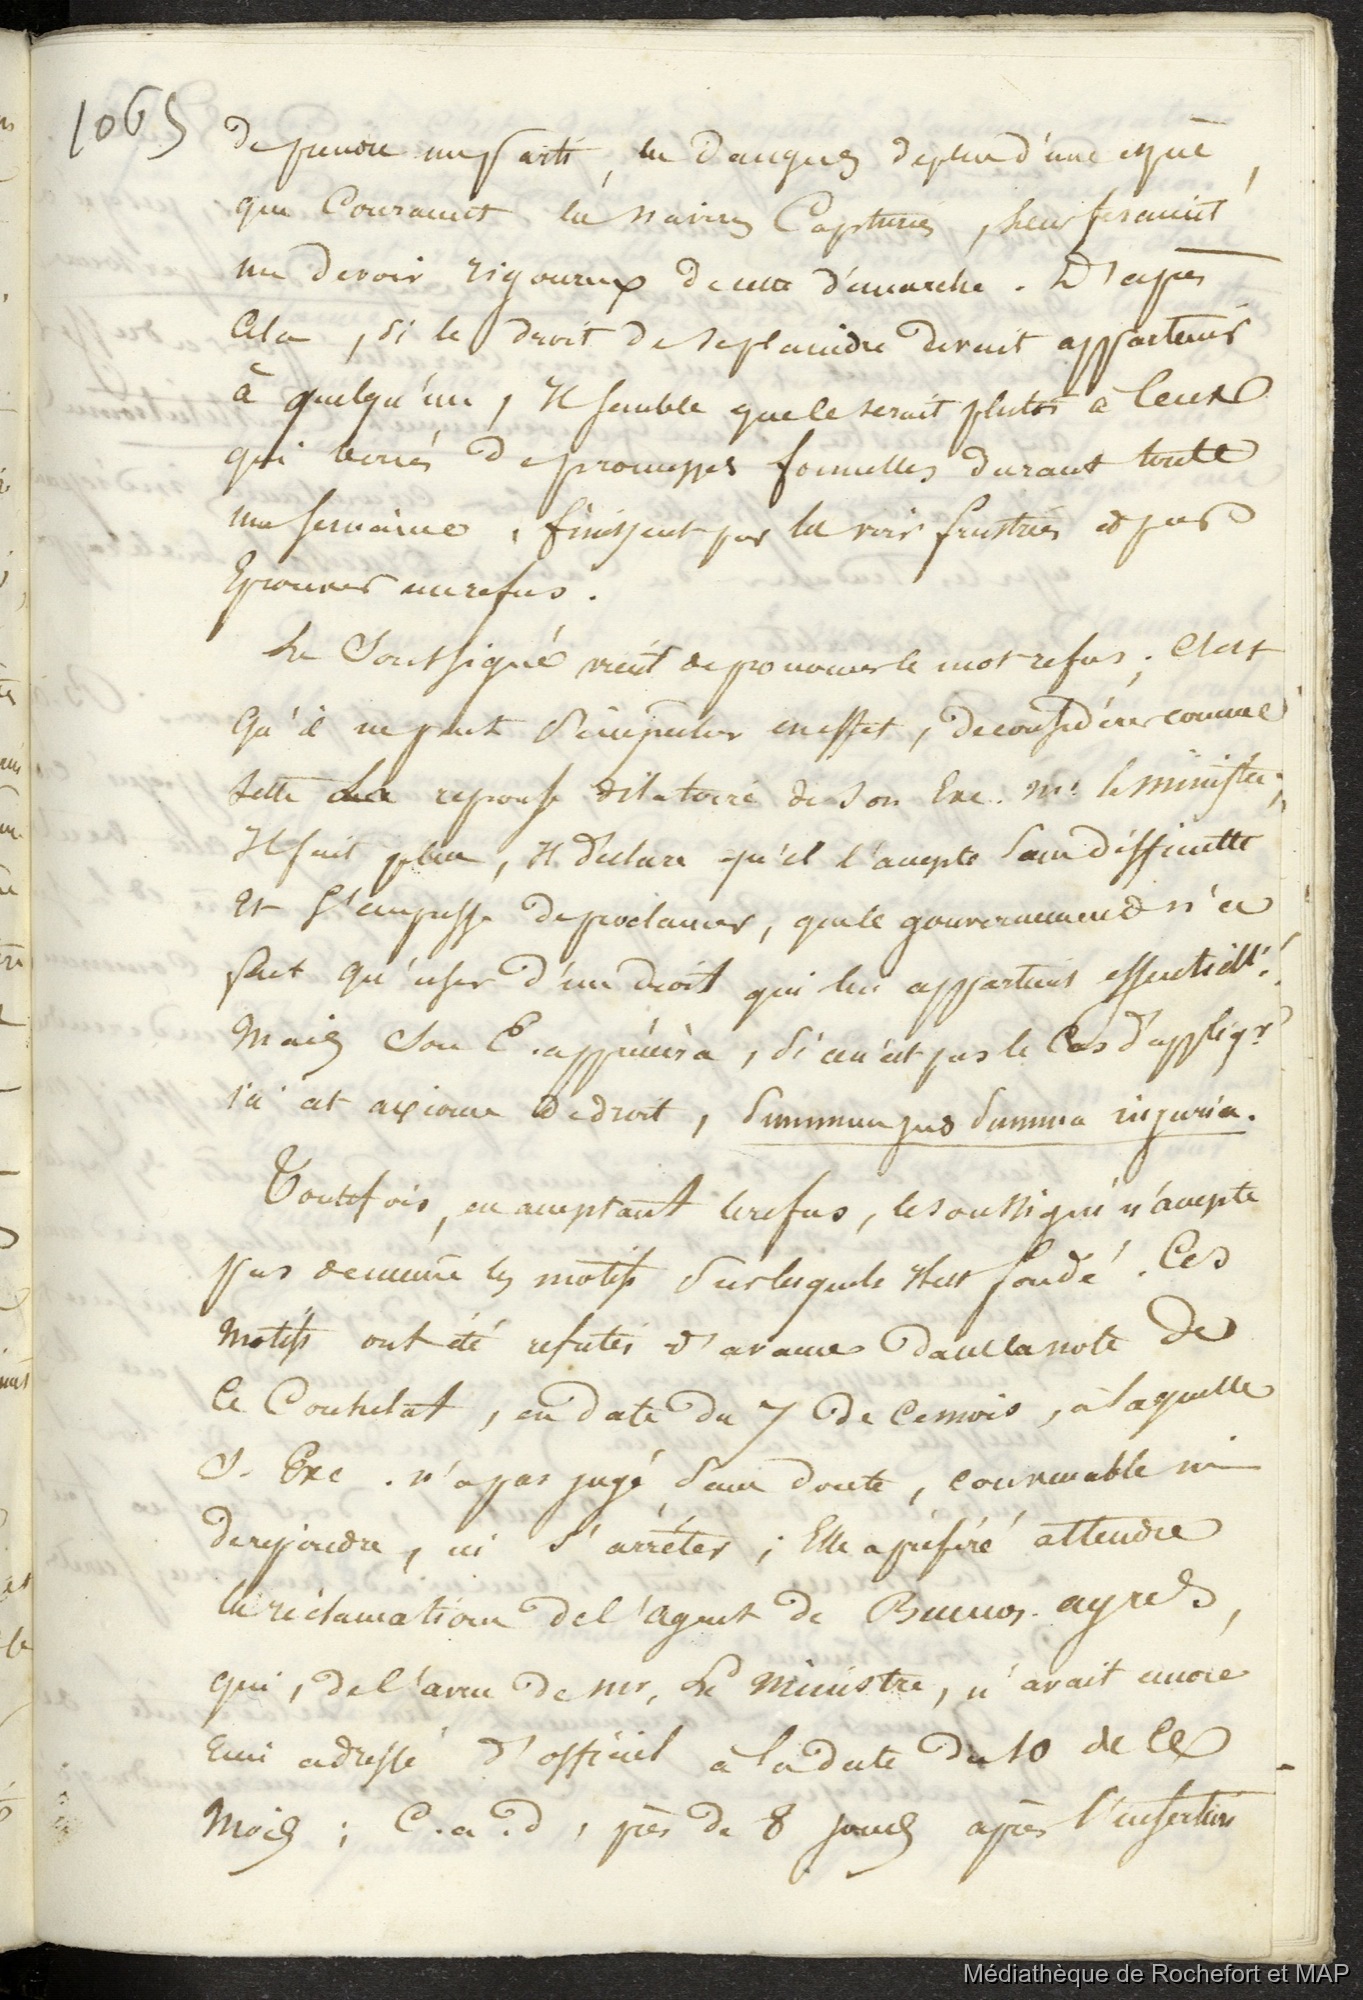 1065
de prendre un parti, les dangers de plus d'une espèce,
que Couraient les navires Capturés, leur feraient
un devoir rigoureux de cette démarche. D'après
Cela, si le droit de se plaindre devait appartenir
à quelqu'un, Il semble que ce serait plutot à Ceux
qui bercés de promesses formelles durant toute
une semaine, finissent par les voir frustrées et par
Eprouver un refus.
Le Soussigné vient de prononcer le mot refus; C'est
qu'il ne peut s'empecher en effet, de considérer comme
telle la reponse dilatoire de Son Exc. Mr. le ministre;
Il fait plus, Il déclare qu'il l'accepte sans difficulté
et s'empresse de proclamer, que le gouvernement n'a
fait qu'user d'un droit qui lui appartient essentiellt.
Mais Son E. appréciera, si ce n'est pas le Cas d'appliqr.
ici cet axiome de droit, summum jus summa injuria.
Toutefois, en acceptant le refus, le soussigné n'accepte
pas de même les motifs sur lesquels Il est fondé. Ces
Motifs ont été refutés d'avance dans la note de
Ce Consulat, en date du 7 de Ce mois, à laquelle
S. Exc. n'a pas jugé sans doute, convenable ni
de repondre, ni s'arrêter; Elle a préféré attendre
les réclamations de l'agent de Buenos-ayres,
qui, de l'aveu de Mr. Le Ministre, n'avait encore
rien adressé d'officiel à la date du 10 de Ce
Mois; C.a.d, près de 8 jours après l'insertion
Médiathèque de Rochefort et MAP